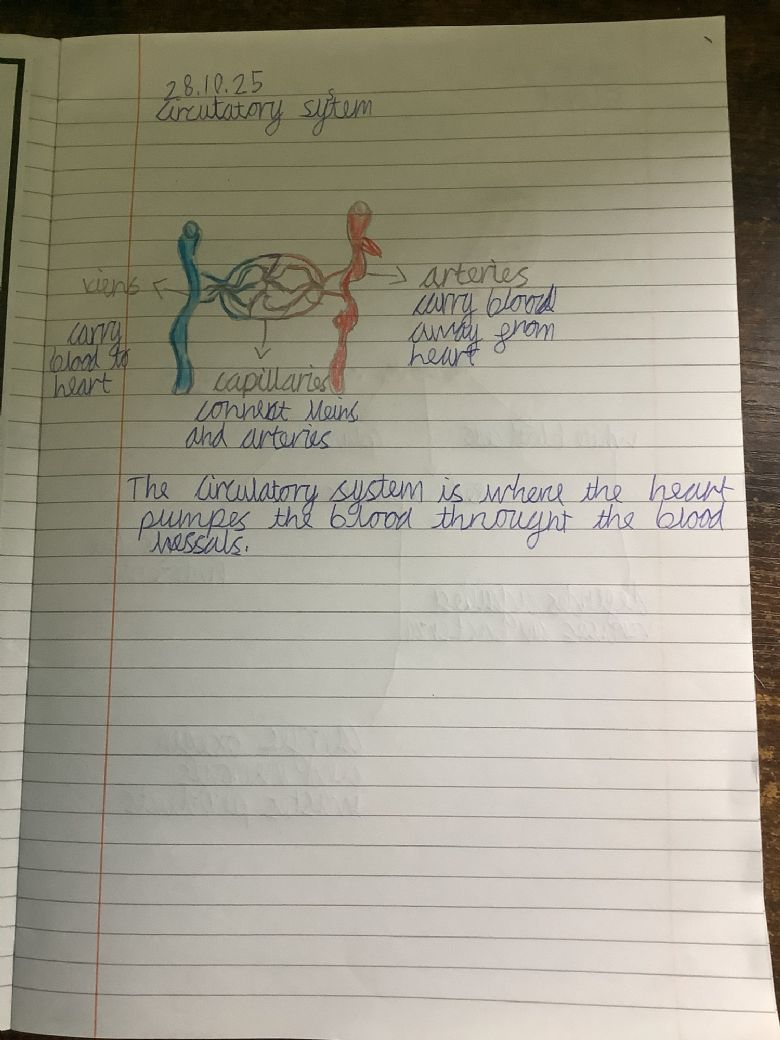 28.10.25
Circutatory system
viens
carry
blood to
heart
capillaries
connent veins
and arteries
arteries
carry blood
away from
heart
The circulatory system is where the heart
pumpes the blood throught the blood
vessals.